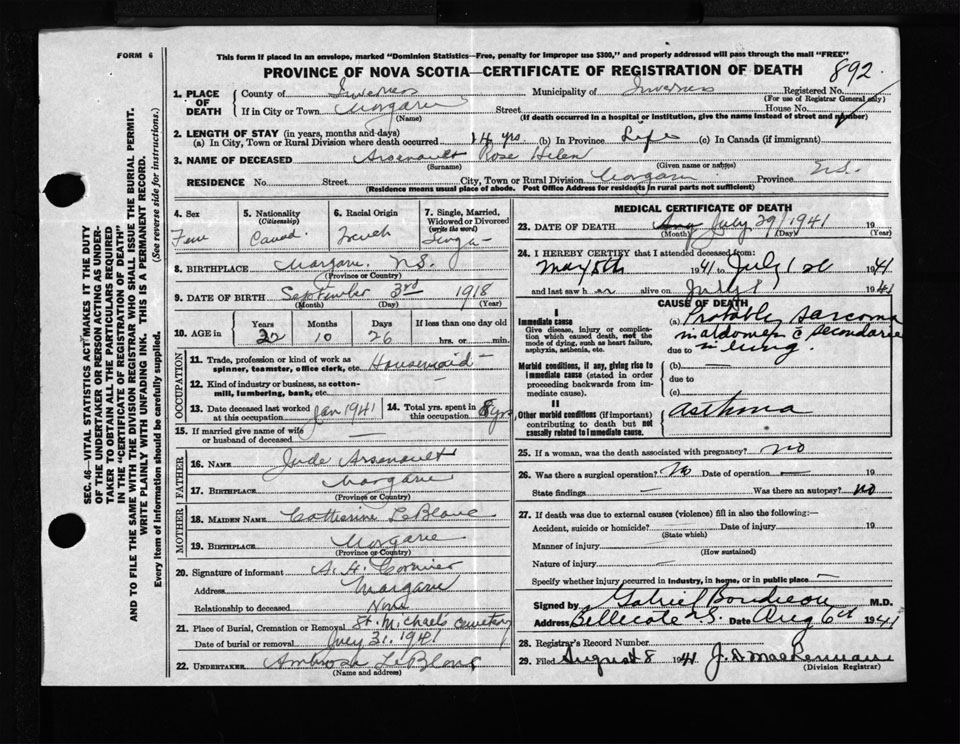 FORM 6
This form if placed in an envelope, marked "Dominion Statistics—Free, penalty for improper use $300," and properly addressed will pass through the mail "FREE"
PROVINCE OF NOVA SCOTIA—CERTIFICATE OF REGISTRATION OF DEATH 892
SEC. 46—VITAL STATISTICS ACT MAKES IT THE DUTY
OF THE UNDERTAKER OR PERSON ACTING AS UNDER-
TAKER TO OBTAIN ALL THE PARTICULARS REQUIRED
IN THE "CERTIFICATE OF REGISTRATION OF DEATH"
AND TO FILE THE SAME WITH THE DIVISION REGISTRAR WHO SHALL ISSUE THE BURIAL PERMIT.
WRITE PLAINLY WITH UNFADING INK. THIS IS A PERMANENT RECORD.
Every item of information should be carefully supplied. (See reverse side for instructions.)
1. PLACE OF DEATH
County of Inverness Municipality of Inverness Registered No.
(For use of Registrar General only)
If in City or Town Margaree Street House No.
(Name) (If death occurred in a hospital or institution, give the name instead of street and number)
2. LENGTH OF STAY (in years, months and days)
(a) In City, Town or Rural Division where death occurred 14 yrs (b) In Province Life (c) In Canada (if immigrant)
3. NAME OF DECEASED Arsenault Rose Helen
(Surname) (Given name or names)
RESIDENCE No. Street City, Town or Rural Division Margaree Province N.S.
(Residence means usual place of abode. Post Office Address for residents in rural parts not sufficient)
4. Sex
Fem
5. Nationality
(Citizenship)
Canad.
6. Racial Origin
French
7. Single, Married,
Widowed or Divorced
(write the word)
Single
8. BIRTHPLACE Margaree N.S.
(Province or Country)
9. DATE OF BIRTH September 3rd 1918
(Month) (Day) (Year)
10. AGE in
Years Months Days If less than one day old
22 10 26 hrs. or min.
OCCUPATION
11. Trade, profession or kind of work as
spinner, teamster, office clerk, etc. Housemaid
12. Kind of industry or business, as cotton-
mill, lumbering, bank, etc. —
13. Date deceased last worked
at this occupation Jan 1941
14. Total yrs. spent in
this occupation 8 yrs
15. If married give name of wife
or husband of deceased —
FATHER
16. NAME Jude Arsenault
17. BIRTHPLACE Margaree
(Province or Country)
MOTHER
18. MAIDEN NAME Catherine LeBlanc
19. BIRTHPLACE Margaree
(Province or Country)
20. Signature of informant A. A. Cormier
Address Margaree
Relationship to deceased None
21. Place of Burial, Cremation or Removal St. Michaels Cemetery
Date of burial or removal July 31. 1941
22. UNDERTAKER Ambrose LeBlanc
(Name and address)
MEDICAL CERTIFICATE OF DEATH
23. DATE OF DEATH July 29/1941 19
(Month) (Day) (Year)
24. I HEREBY CERTIFY that I attended deceased from:
May 5th 1941 to July 1941
and last saw h er alive on July 8 1941
CAUSE OF DEATH
I
Immediate cause
Give disease, injury or complica-
tion which caused death, not the
mode of dying, such as heart failure,
asphyxia, asthenia, etc.
(a) Probable sarcoma
in abdomen c secondaries
due to in lung.
Morbid conditions, if any, giving rise to
immediate cause (stated in order
proceeding backwards from im-
mediate cause).
(b)
due to
(c)
II
Other morbid conditions (if important)
contributing to death but not
causally related to immediate cause.
Asthma
25. If a woman, was the death associated with pregnancy? no
26. Was there a surgical operation? No Date of operation — 19
State findings — Was there an autopsy? no
27. If death was due to external causes (violence) fill in also the following:—
Accident, suicide or homicide? Date of injury 19
(State which)
Manner of injury
(How sustained)
Nature of injury —
Specify whether injury occurred in industry, in home, or in public place —
Signed by Gabriel Boudreau M.D.
Address Bellecote N.S. Date Aug 6th 1941
28. Registrar's Record Number
29. Filed August 8 1941 J. D. MacLennan
(Division Registrar)